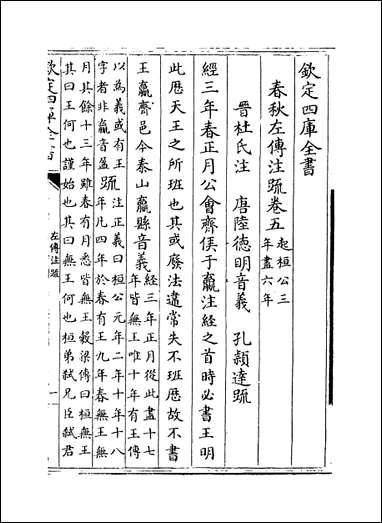 欽定四庫全書
春秋左傳注疏卷五
起桓公三
年盡六年
晉杜氏注 唐陸德明音義 孔穎達疏
經三年春正月公會齊侯于嬴注經之首時必書王明
此厯天王之所班也其或廢法違常失不班厯故不書
王嬴齊邑今泰山嬴縣音義
經三年正月從此盡十七
年皆無王唯十年有王傳
以為義或有王
字者非嬴音盈
疏
注正義曰桓公元年二年十年十八
年凡四年於春有王九年春無王無
月其餘十三年雖春有月悉皆無王穀梁傳曰桓無王
其曰王何也謹始也其曰無王何也桓弟弑兄臣弑君
欽定四庫全書
左傳注疏
一